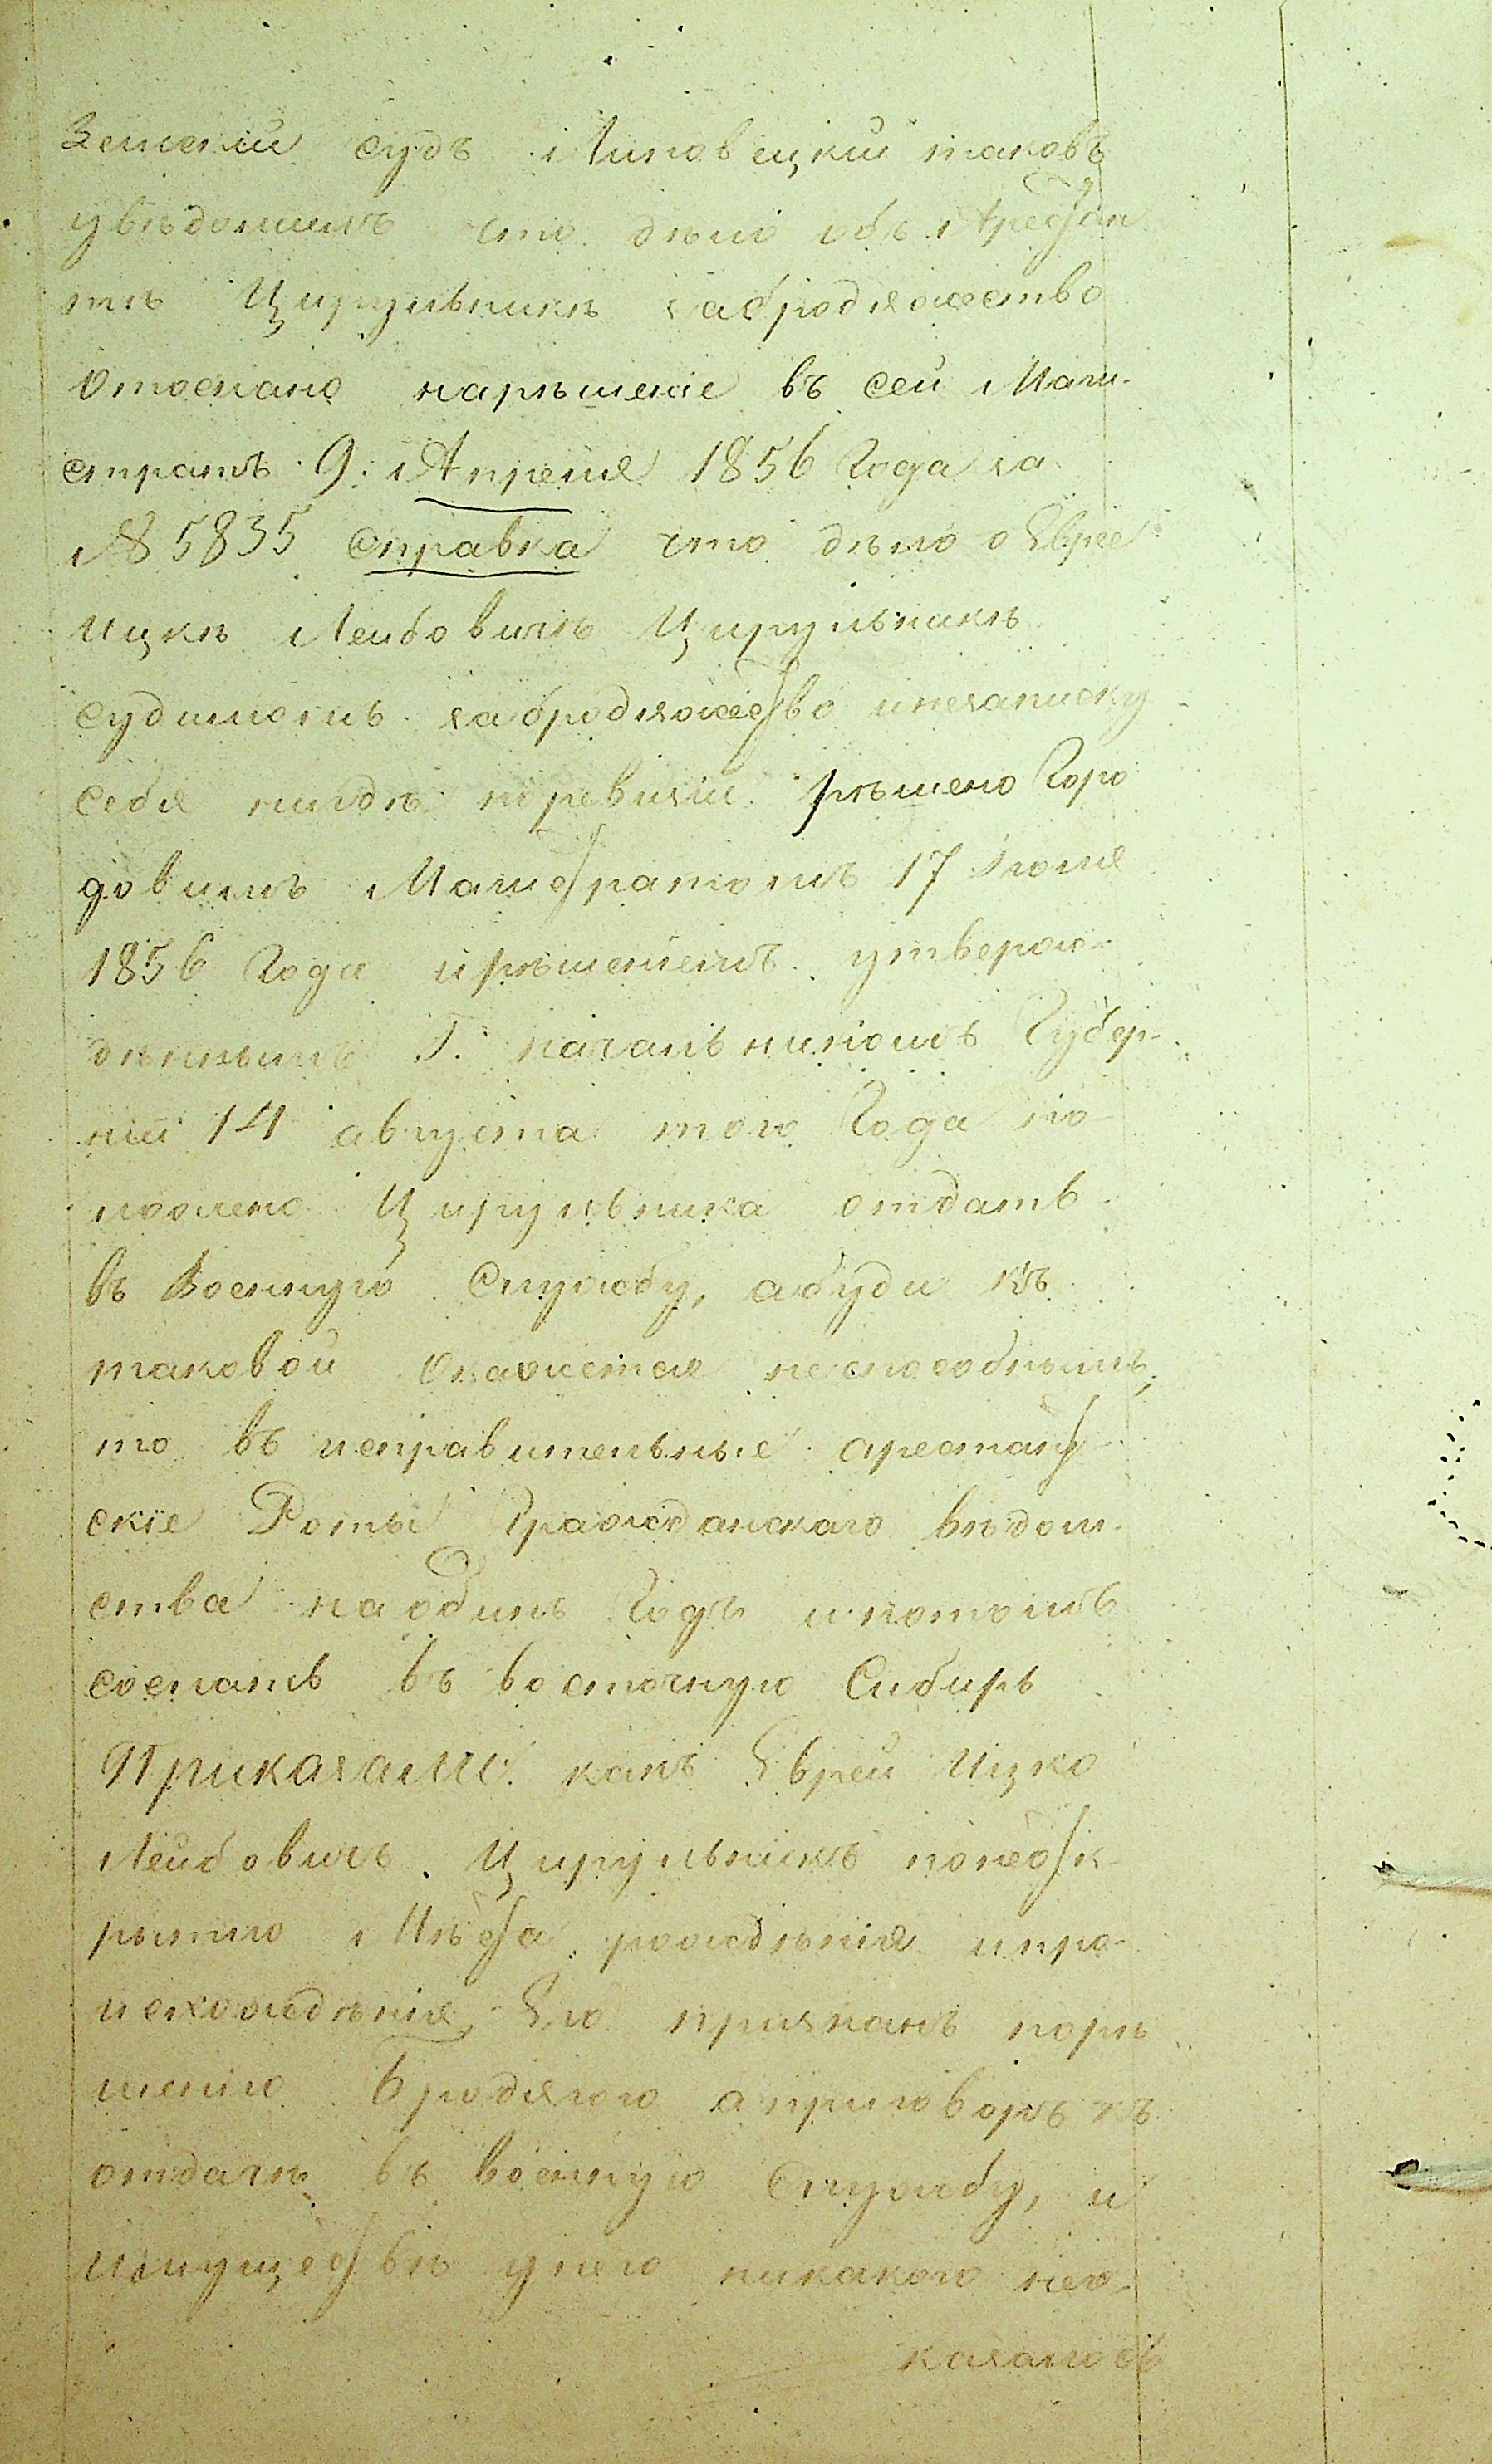 Земскій судъ Липовецкій таковъ
увѣдомилъ что дѣло объ Арестан
тѣ Цирульникѣ забродяжество
Отослано нарѣшеніе въ сей Маги-
стратъ 9. Апреля 1856 Года за
№ 5835 справка что дѣло о Еврее
Ицкѣ Лейбовичѣ Цирульникѣ
судимомъ забродяжество инезаписку
себя нигдѣ поревизіи рѣшено Горо
довымъ Магистратомъ 17 Іюля
1856 Года ирѣшеніемъ утверж-
дѣннымъ Г. Начальникомъ Губер-
ніи 14 августа того Года по-
ложено Цирульника отдать
въ Военную Службу, абуди къ
таковой Окажется неспособнымъ,
то въ исправительные арестант-
скіе Роты Гражданскаго вѣдом-
ства наодинъ Годъ ипотомъ
сослать въ восточную Сибирь
Приказали: какъ Еврей Ицко
Лейбовичъ Цирульникъ понеотк-
рытію Мѣста рождѣнія ипро-
исхождѣнія Его признанъ порѣ
шенію Бродягою априговоръ къ
отдачѣ въ военную Службу, и
имуществъ унего никакого нео-
казалось